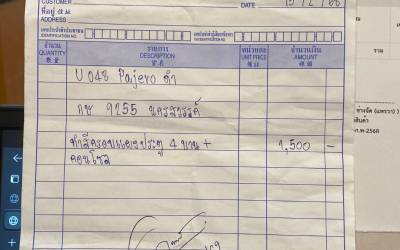 CUSTOMER
ที่อยู่ 住址 DATE 15/2/68
ADDRESS
เลขประจำตัวประชาชน
IDENTIFICATION NO.
เลขประจำตัวผู้เสียภาษี
IDENTIFICATION NO.
จำนวน รายการ หน่วยละ จำนวนเงิน
QUANTITY DESCRIPTION UNIT PRICE AMOUNT
数量
U048 Pajero ดำ
กข 9255 นครสวรรค์
ทำสีครอบแผงประตู 4 บาน + 1,500 -
คอนโซล
รวม
สินค้า